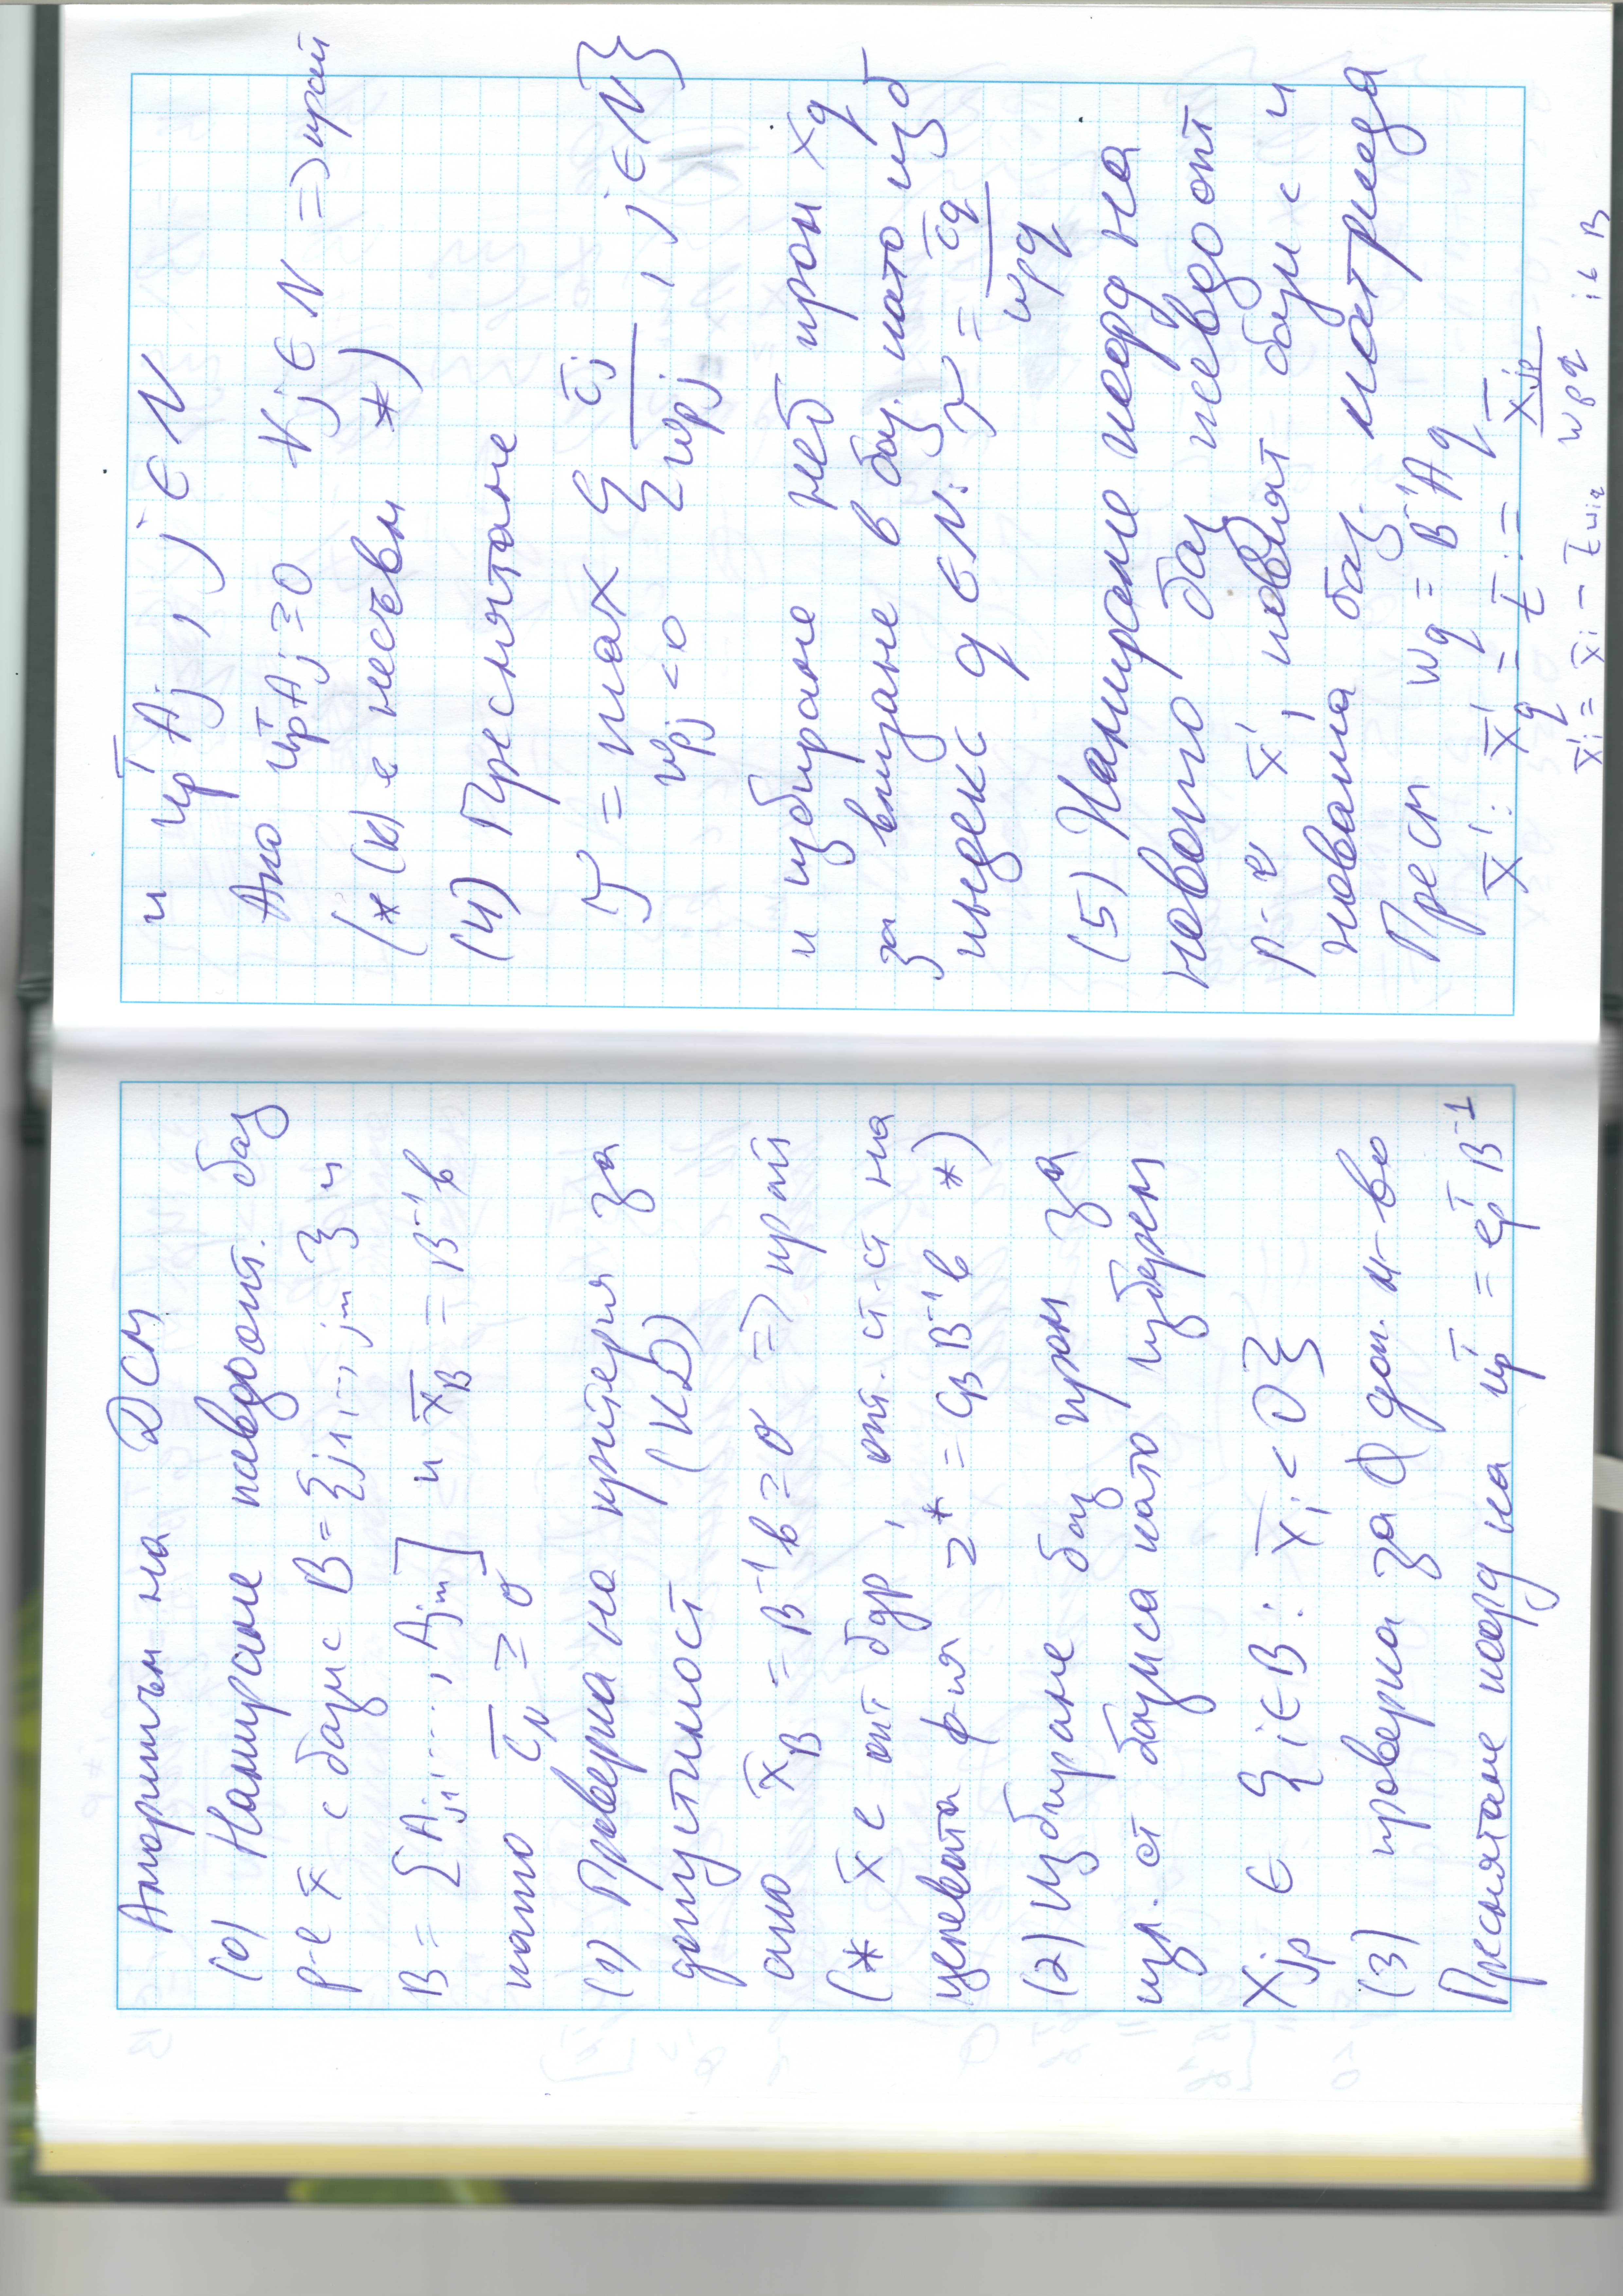 Алгоритъм на ДСМ
(0) Намиране псевдоопт. баз
р-е x̄ с базис B = {j1, ..., jm} и
B = [Aj1, ..., Ajm] и x̄B = B⁻¹b
като c̄N ≥ 0
(1) Проверка на критерия за
допустимост (КD)
ако x̄B = B⁻¹b ≥ 0 => край
(* x̄ е опт бдр, опт. ст-ст на
целевата ф-ия z* = cB B⁻¹b *)
(2) Избиране баз пром за
изл. от базиса като изберем
xjp ∈ {i ∈ B : x̄i < 0}
(3) проверка за ∅ доп. м-во
Пресмятане коорд на upᵀ = epᵀ B⁻¹
и upᵀ Aj, j ∈ N
Ако upᵀ Aj ≥ 0 ∀j ∈ N => край
(* (K) е несъвм *)
(4) Пресмятане
γ = max { c̄j / wpj , j ∈ N }
wpj < 0
и избиране неб пром xq
за влизане в баз. като изб
индекс q ∈ N: γ = c̄q / wpq
(5) Намиране коорд на
новото баз псевдоопт
р-е x̄', новият базис и
новата баз. матрица
Пресм wq = B⁻¹Aq
x̄': x̄'q = t̄ := x̄jp / wpq
x̄'i = x̄i − t̄wiq i ∈ B